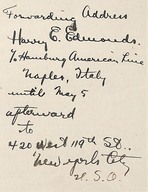 Forwarding Address
Harry E. Edmonds.
c/o Hamburg American Line
Naples, Italy
until May 5
afterward
to
420 West 119th St..
New York City
U.S.A.